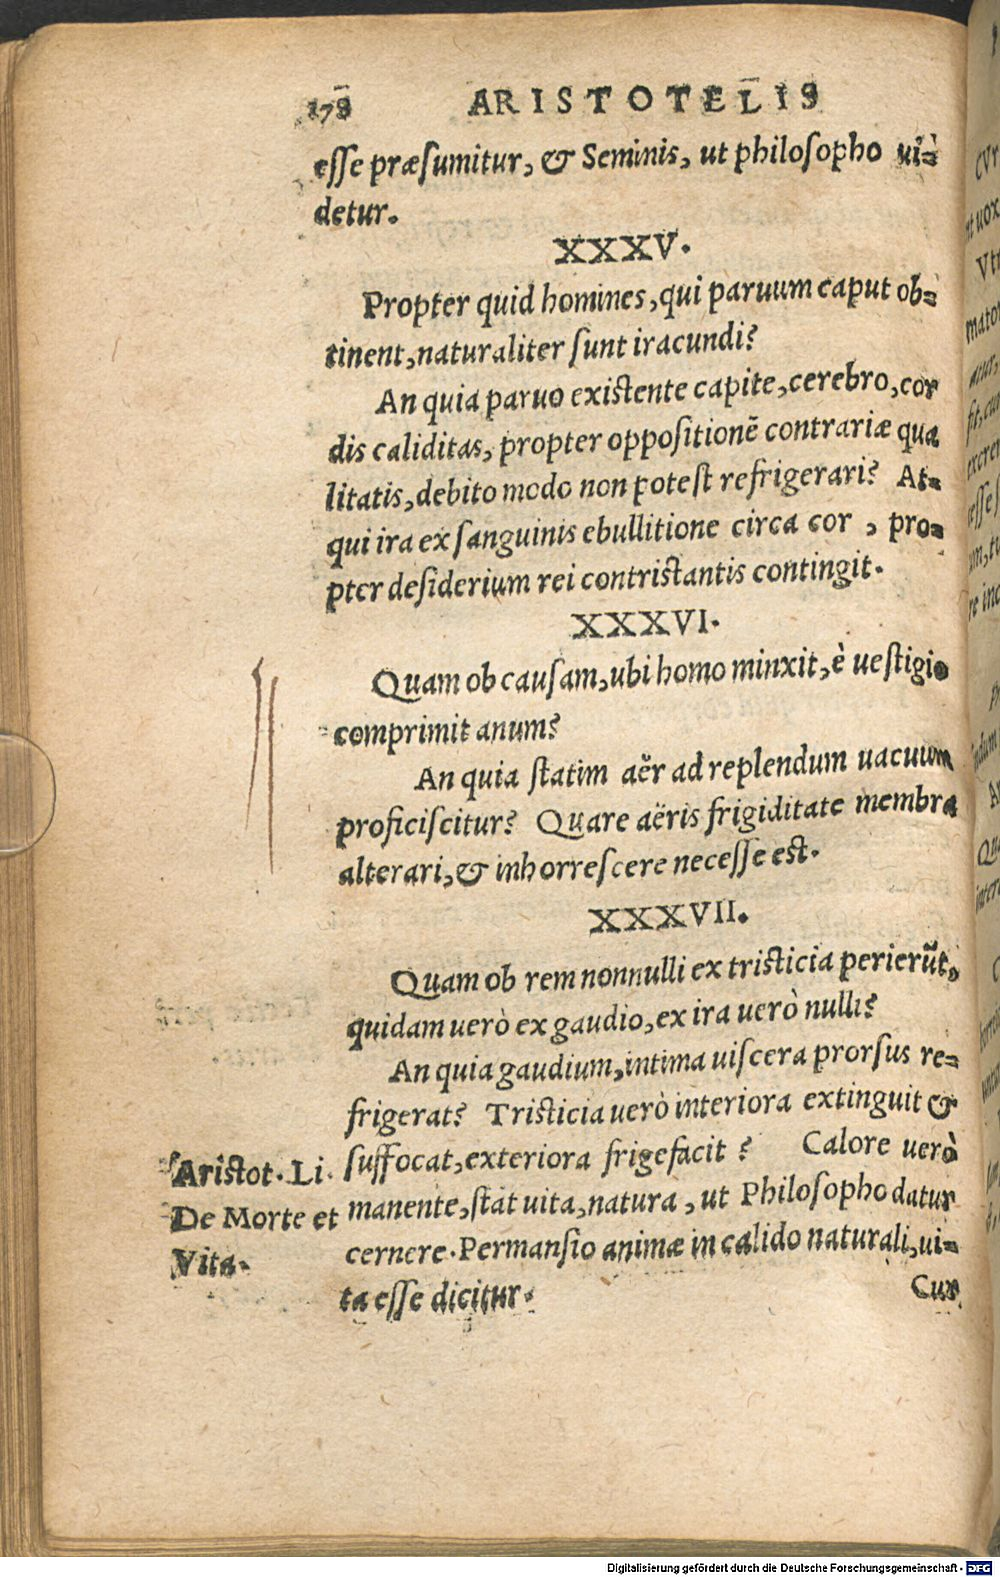 178 ARISTOTELIS
esse præsumitur, & Seminis, ut philosopho ui-
detur.
XXXV.
Propter quid homines, qui paruum caput ob-
tinent, naturaliter sunt iracundi?
An quia paruo existente capite, cerebro, cor
dis caliditas, propter oppositionē contrariæ qua
litatis, debito modo non potest refrigerari? At-
qui ira ex sanguinis ebullitione circa cor, pro-
pter desiderium rei contristantis contingit.
XXXVI.
Quam ob causam, ubi homo minxit, è uestigio
comprimit anum?
An quia statim aër ad replendum uacuum
proficiscitur? Quare aëris frigiditate membra
alterari, & inhorrescere necesse est.
XXXVII.
Quam ob rem nonnulli ex tristicia perierūt,
quidam uerò ex gaudio, ex ira uerò nulli?
An quia gaudium, intima uiscera prorsus re-
frigerat? Tristicia uerò interiora extinguit &
suffocat, exteriora frigefacit? Calore uerò
manente, stat uita, natura, ut Philosopho datur
cernere. Permansio animæ in calido naturali, ui-
ta esse dicitur.
Cur
Aristot. Li.
De Morte et
Vita.
Digitalisierung gefördert durch die Deutsche Forschungsgemeinschaft - DFG